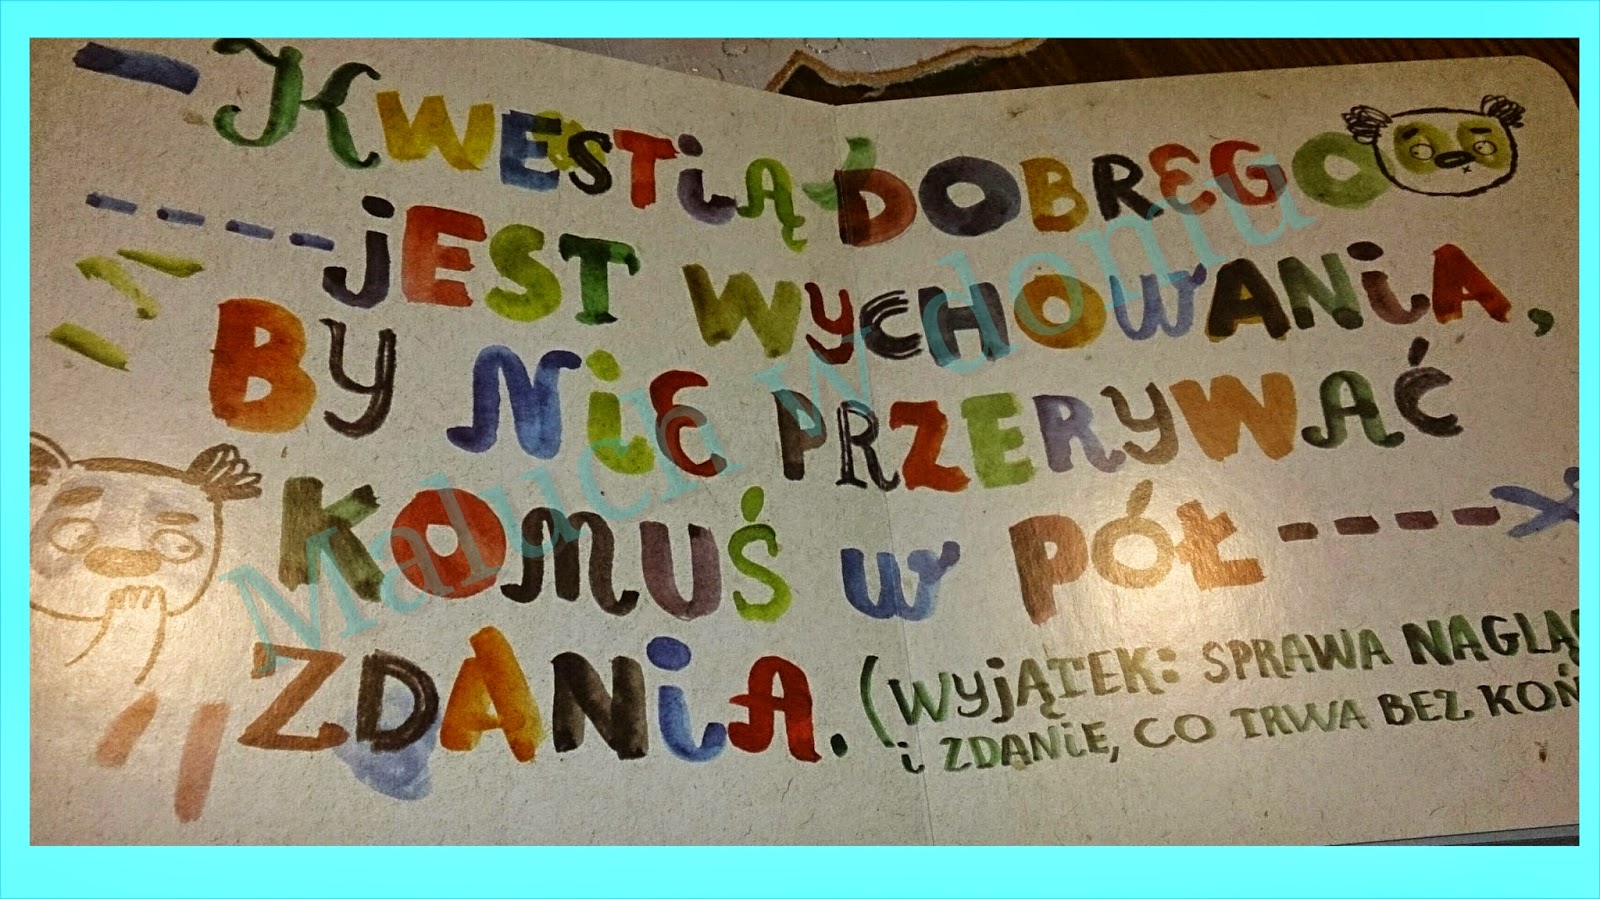 KWESTIĄ DOBREGO
JEST WYCHOWANIA,
BY NIE PRZERYWAĆ
KOMUŚ W PÓŁ
ZDANIA. (WYJĄTEK: SPRAWA NAGLĄC
i ZDANIE, CO TRWA BEZ KOŃ
Maluch w domu